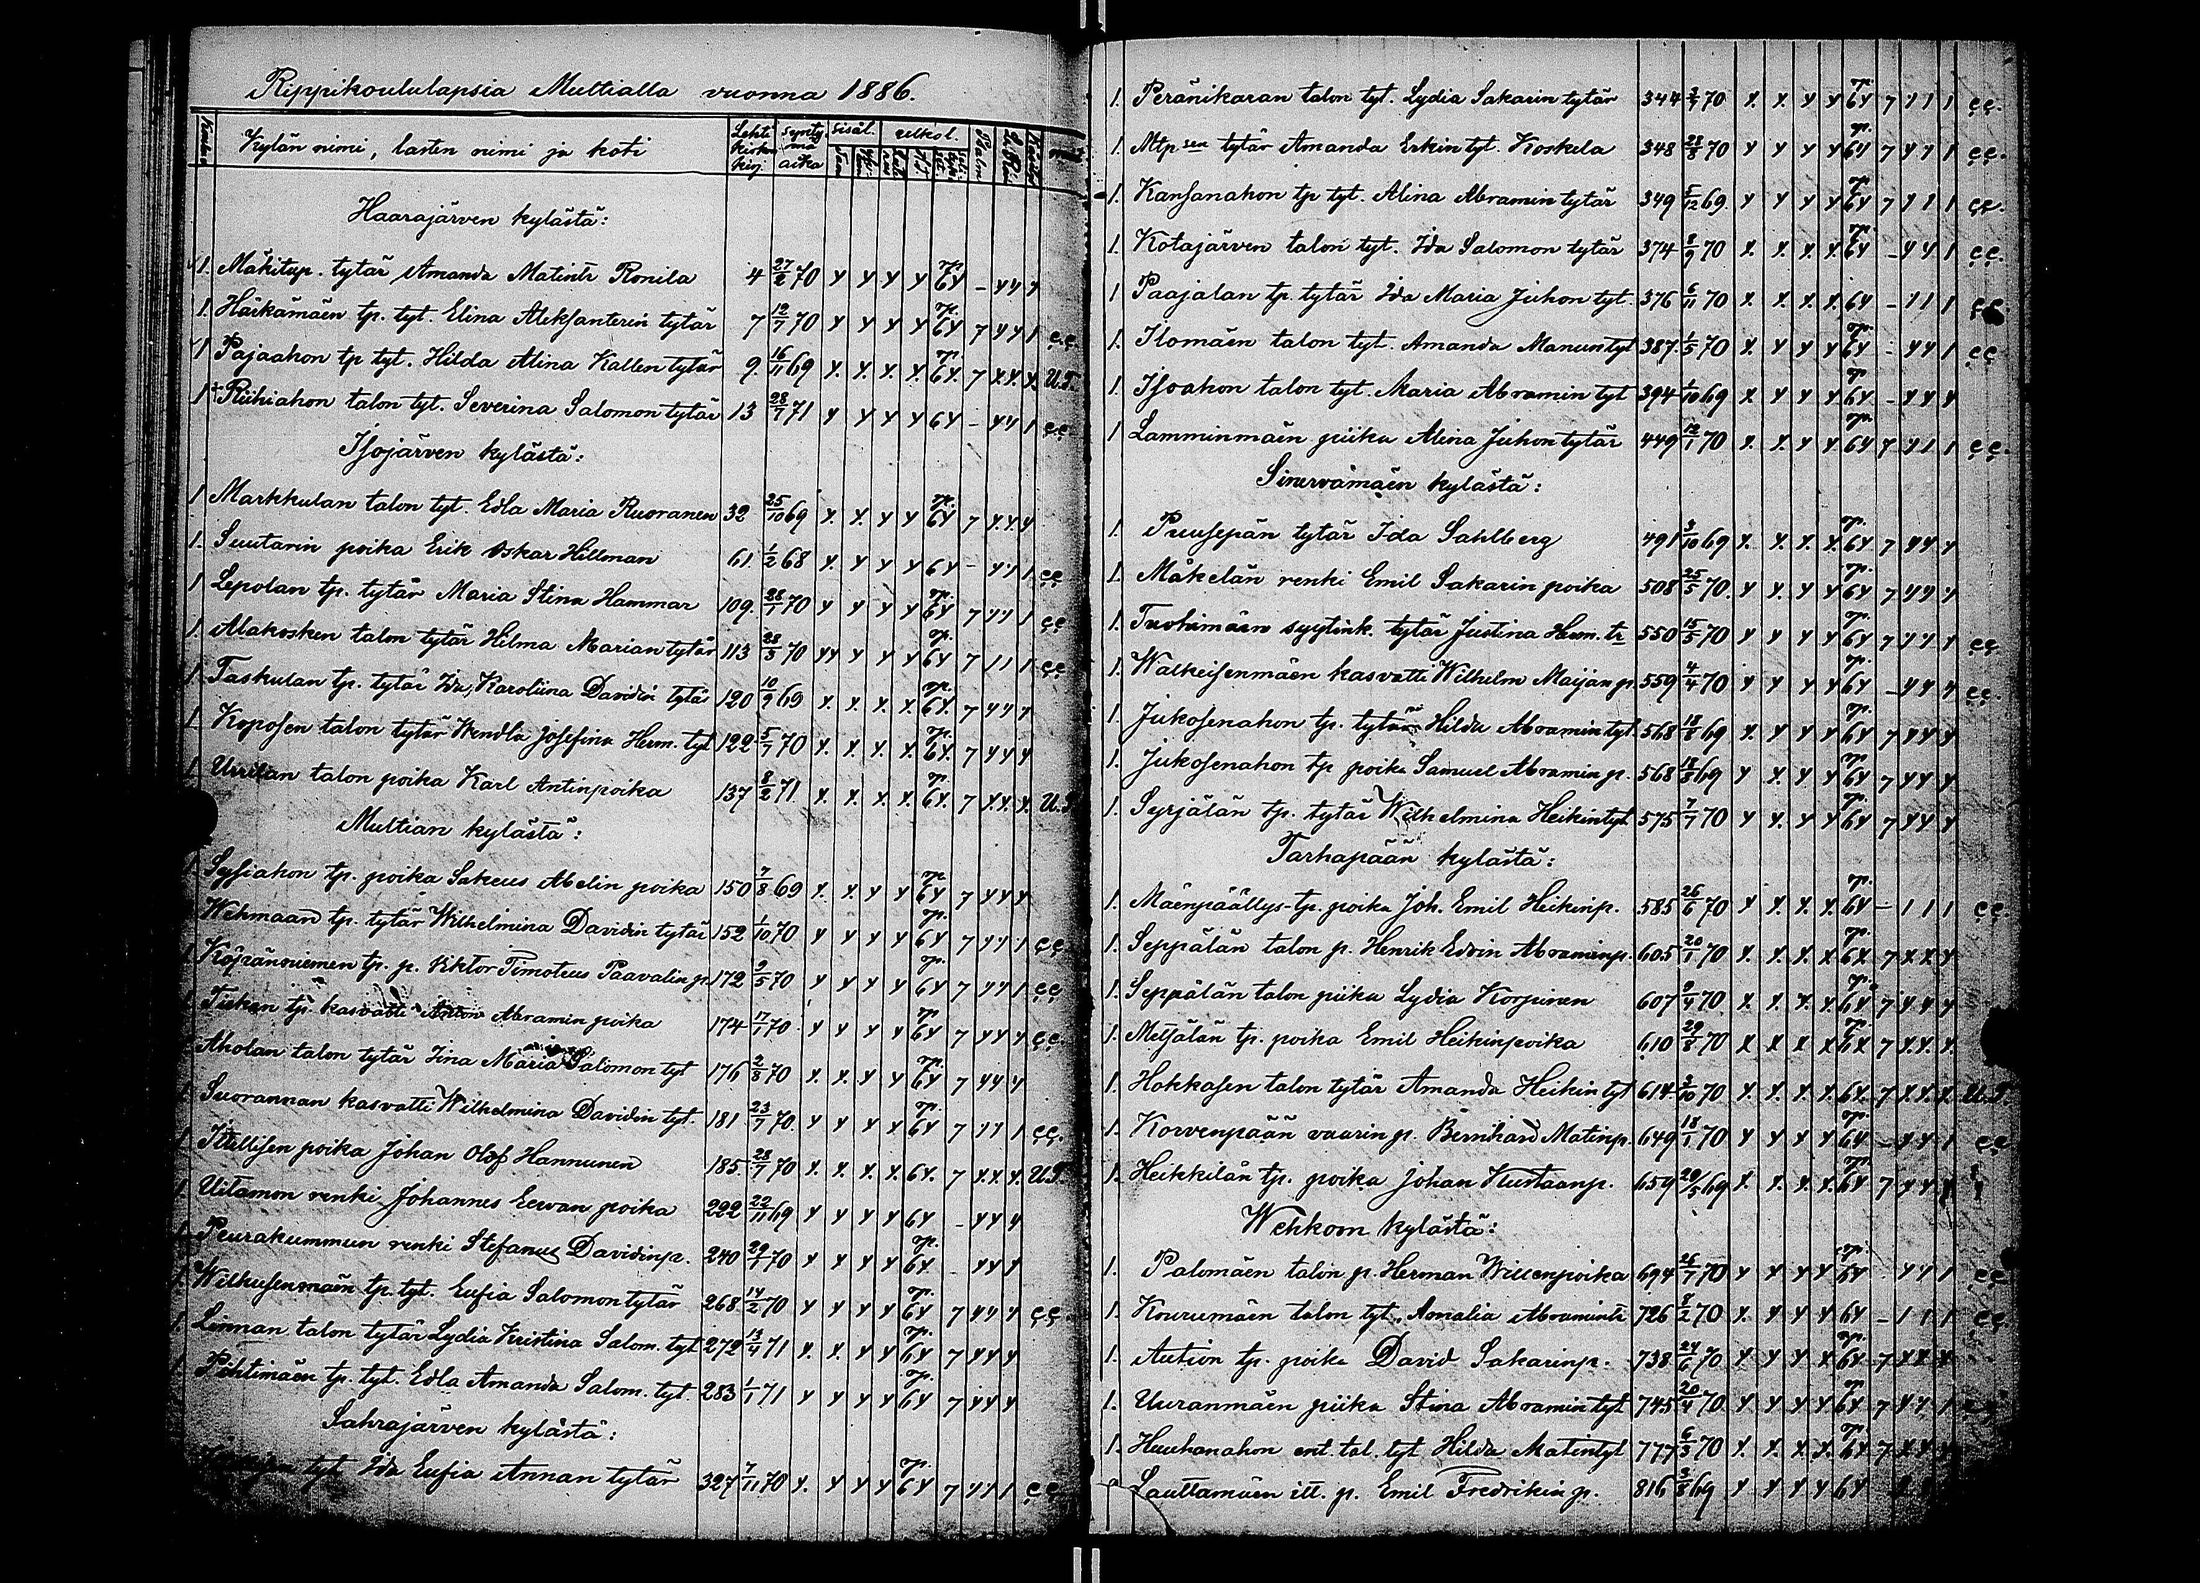 Rippikoululapsia Multialla vuonna 1886.
Kylän nimi, lasten nimi ja koti Lehti kirkon kirj. synty mä aika sisäl. ulkol.
Haarajärven kylästä:
1. Mäkitup. tytär Amanda Matintr Ronila 4 27/2 70 y y y y op. 6y - y y y
1. Häkämäen tp. tyt. Elina Aleksanterin tytär 7 12/7 70 y y y y op. 6y 7 y y 1 c.c.
1 Pajaahon tp tyt. Hilda Alina Kallen tytär 9. 16/11 69 x. x. x. x. op 6x. 7 x. x. x. U.T.
1 Riihiahon talon tyt. Severina Salomon tytär 13 28/7 71 y y y y 6y - y y 1 c.c.
Isojärven kylästä:
1 Markkulan talon tyt. Edla Maria Ruoranen 32 25/10 69 y. y. y y op. 6y 7 y. y. y
1. Suutarin poika Erik Oskar Hillman 61 1/2 68 y. y y y 6y - y y 1 c.c.
1 Lepolan tp. tytär Maria Stina Hammar 109. 28/1 70 y y y y op. 6y 7 y y 1 c.c.
1. Alakosken talon tytär Hilma Marian tytär 113 28/3 70 y y y y y op. 6y 7 1 1 1 c.c.
1. Taskulan tp. tytär Ida, Karoliina Davidin tytär 120 10/9 69 y. y. y. y. op. 6y. 7 y y y
1. Koposen talon tytär Wendla Josefina Herm. tyt 122 5/7 70 y. y. y. y. op. 6y. 7 y y y
1. Uurilan talon poika Karl Antinpoika 137 8/2 71 y. y. y. y. op. 6y. 7 x. x. x. U.T.
Multian kylästä:
1. Sysiahon tp. poika Sakeus Abelin poika 150 7/8 69 y. y. y y op. 6y 7 y y y
1. Wehmaan tp. tytär Wilhelmina Davidin tytär 152 1/10 70 y y y y op. 6y 7 y y 1 c.c.
1. Köpränniemen tp. p. Viktor Timoteus Paavalin p. 172 9/5 70 y y y y op. 6y 7 y y 1 c.c.
1. tp. kasvatti Anton Abramin poika 174 17/1 70 y y y y op 6y 7 y y y c.c.
Aholan talon tytär Iina Maria Salomon tyt 176 2/8 70 y. y. y y op. 6y 7 y y y
1. Suorannan kasvatti Wilhelmina Davidin tyt. 181 23/7 70. y y y y op. 6y 7 1 1 1 c.c.
1. Itsellisen poika Johan Olof Hannunen 185 28/7 70 x. x. x. x. 6x. 7 x. x. x. U.T.
1. Uitamon renki Johannes Eewan poika 222 22/11 69 y y y y 6y - y y y
1. Peurakummun renki Stefanus Davidinp. 240 29/1 70 y y y y op. 6y - y y y
1. Wilhusenmäen tp. tyt. Eufia Salomon tytär 268 14/2 70 y y y y op. 6y 7 y y y c.c.
1. Linnan talon tytär Lydia Kristina Salom. tyt 272 13/4 71 y. y. y y op. 6y 7 y y y
1. Pihtimäen tp. tyt. Edla Amanda Salom. tyt. 283 1/1 71 y y y y op. 6y 7 y y y
Sahrajärven kylästä:
tyt Ida Eufia Annan tytär 327 7/11 70 y. y y y op. 6y 7 y y 1 c.c.
1. Peränikaran talon tyt. Lydia Sakarin tytär 344 2/9 70 y. y. y y op. 6y 7 1 1 1 c.c.
1. Mtp sen tytär Amanda Erkin tyt. Koskela 348 28/8 70 y y y y op. 6y 7 y y 1 c.c.
1. Kansanahon tp tyt. Alina Abramin tytär 349 5/12 69. y y y y op. 6y 7 1 1 1 c.c.
1. Kotajärven talon tyt. Ida Salomon tytär 374 8/9 70 y. y. y. y. op. 6y - y y 1 c.c.
1 Paajalan tp. tytär Ida Maria Juhon tyt. 376 6/11 70 y. y. y. y. 6y - 1 1 1
1. Ilomäen talon tyt. Amanda Manun tyt 387. 1/5 70 y. y y y op. 6y - y y 1 c.c.
1. Isoahon talon tyt. Maria Abramin tyt 394 1/10 69 y. y y y op 6y - y y y
1 Lamminmäen piika Alina Juhon tytär 449 12/1 70 y. y. y y op. 6y 7 y 1 1 c.c.
Sinervämäen kylästä:
1. Puusepän tytär Ida Sahlberg 491 3/10 69 y. y. y. y. op. 6y 7 y y y
1. Mäkelän renki Emil Sakarin poika 508 25/5 70. y y y y op. 6y 7 y y y
1. Tuohimäen syytink. tytär Justina Herm. tr 550 15/5 70 y y y y op. 6y 7 y y 1 c.c.
1. Walkeisenmäen kasvatti Wilhelm Maijan p. 559 4/4 70 y y y y op. 6y - y y y c.c.
1. Jukosenahon tp. tytär Hilda Abramin tyt. 568 18/8 69 y. y y y op. 6y 7 y y y
1. Jukosenahon tp poika Samuel Abramin p. 568 18/8 69 y y. y y op. 6y 7 y y y
1. Syrjälän tp. tytär Wilhelmina Heikin tyt 575 7/7 70 y y. y y op. 6y 7 y y y
Tarhapään kylästä:
1. Mäenpäällys-tp. poika Joh. Emil Heikinp. 585 26/6 70 y y. y. y. op. 6y - 1 1 1 c.c.
1. Seppälän talon p. Henrik Edvin Abraminp. 605 20/1 70 x. x. x. x op. 6x 7 x x y
1. Seppälän talon piika Lydia Korpinen 607 9/4 70 y. y. y. y op. 6y 7 y y y
1. Metsälän tp. poika Emil Heikinpoika 610 29/8 70 x x x x op. 6x 7 x. x. x.
1. Hokkasen talon tytär Amanda Heikin tyt 614 3/10 70 x. x. x. x. 6x. 7 x. x. x. U.T.
1. Korvenpään vaarin p. Bernhard Matinp. 649 18/1 70 y y y y op. 6y - y y 1 c.c.
1. Heikkilän tp. poika Johan Kustaanp. 659 29/5 69 y. y. y. y. op. 6y 7 y y
Wehkoon kylästä:
1. Palomäen talon p. Herman Willenpoika 694 26/7 70 y y y y op. 6y - y y 1 c.c.
1. Kourumäen talon tyt. Amalia Abramintr 726 8/2 70. y. y y y 6y - 1 1 1 c.c.
1. Aution tp. poika David Sakarinp. 738 24/6 70 y. y y y. op. 6y 7 x x x
1. Uuranmäen piika Stina Abramin tyt 745 20/4 70. y. y y y op. 6y 7 y y. 1
1. Huuhanahon ent. tal. tyt Hilda Matintyt 777 6/3 70 y. y. y. y. op. 6y 7 x x
Lauttamäen itt. p. Emil Fredrikin p. 816 3/8 69 y y y y 6y